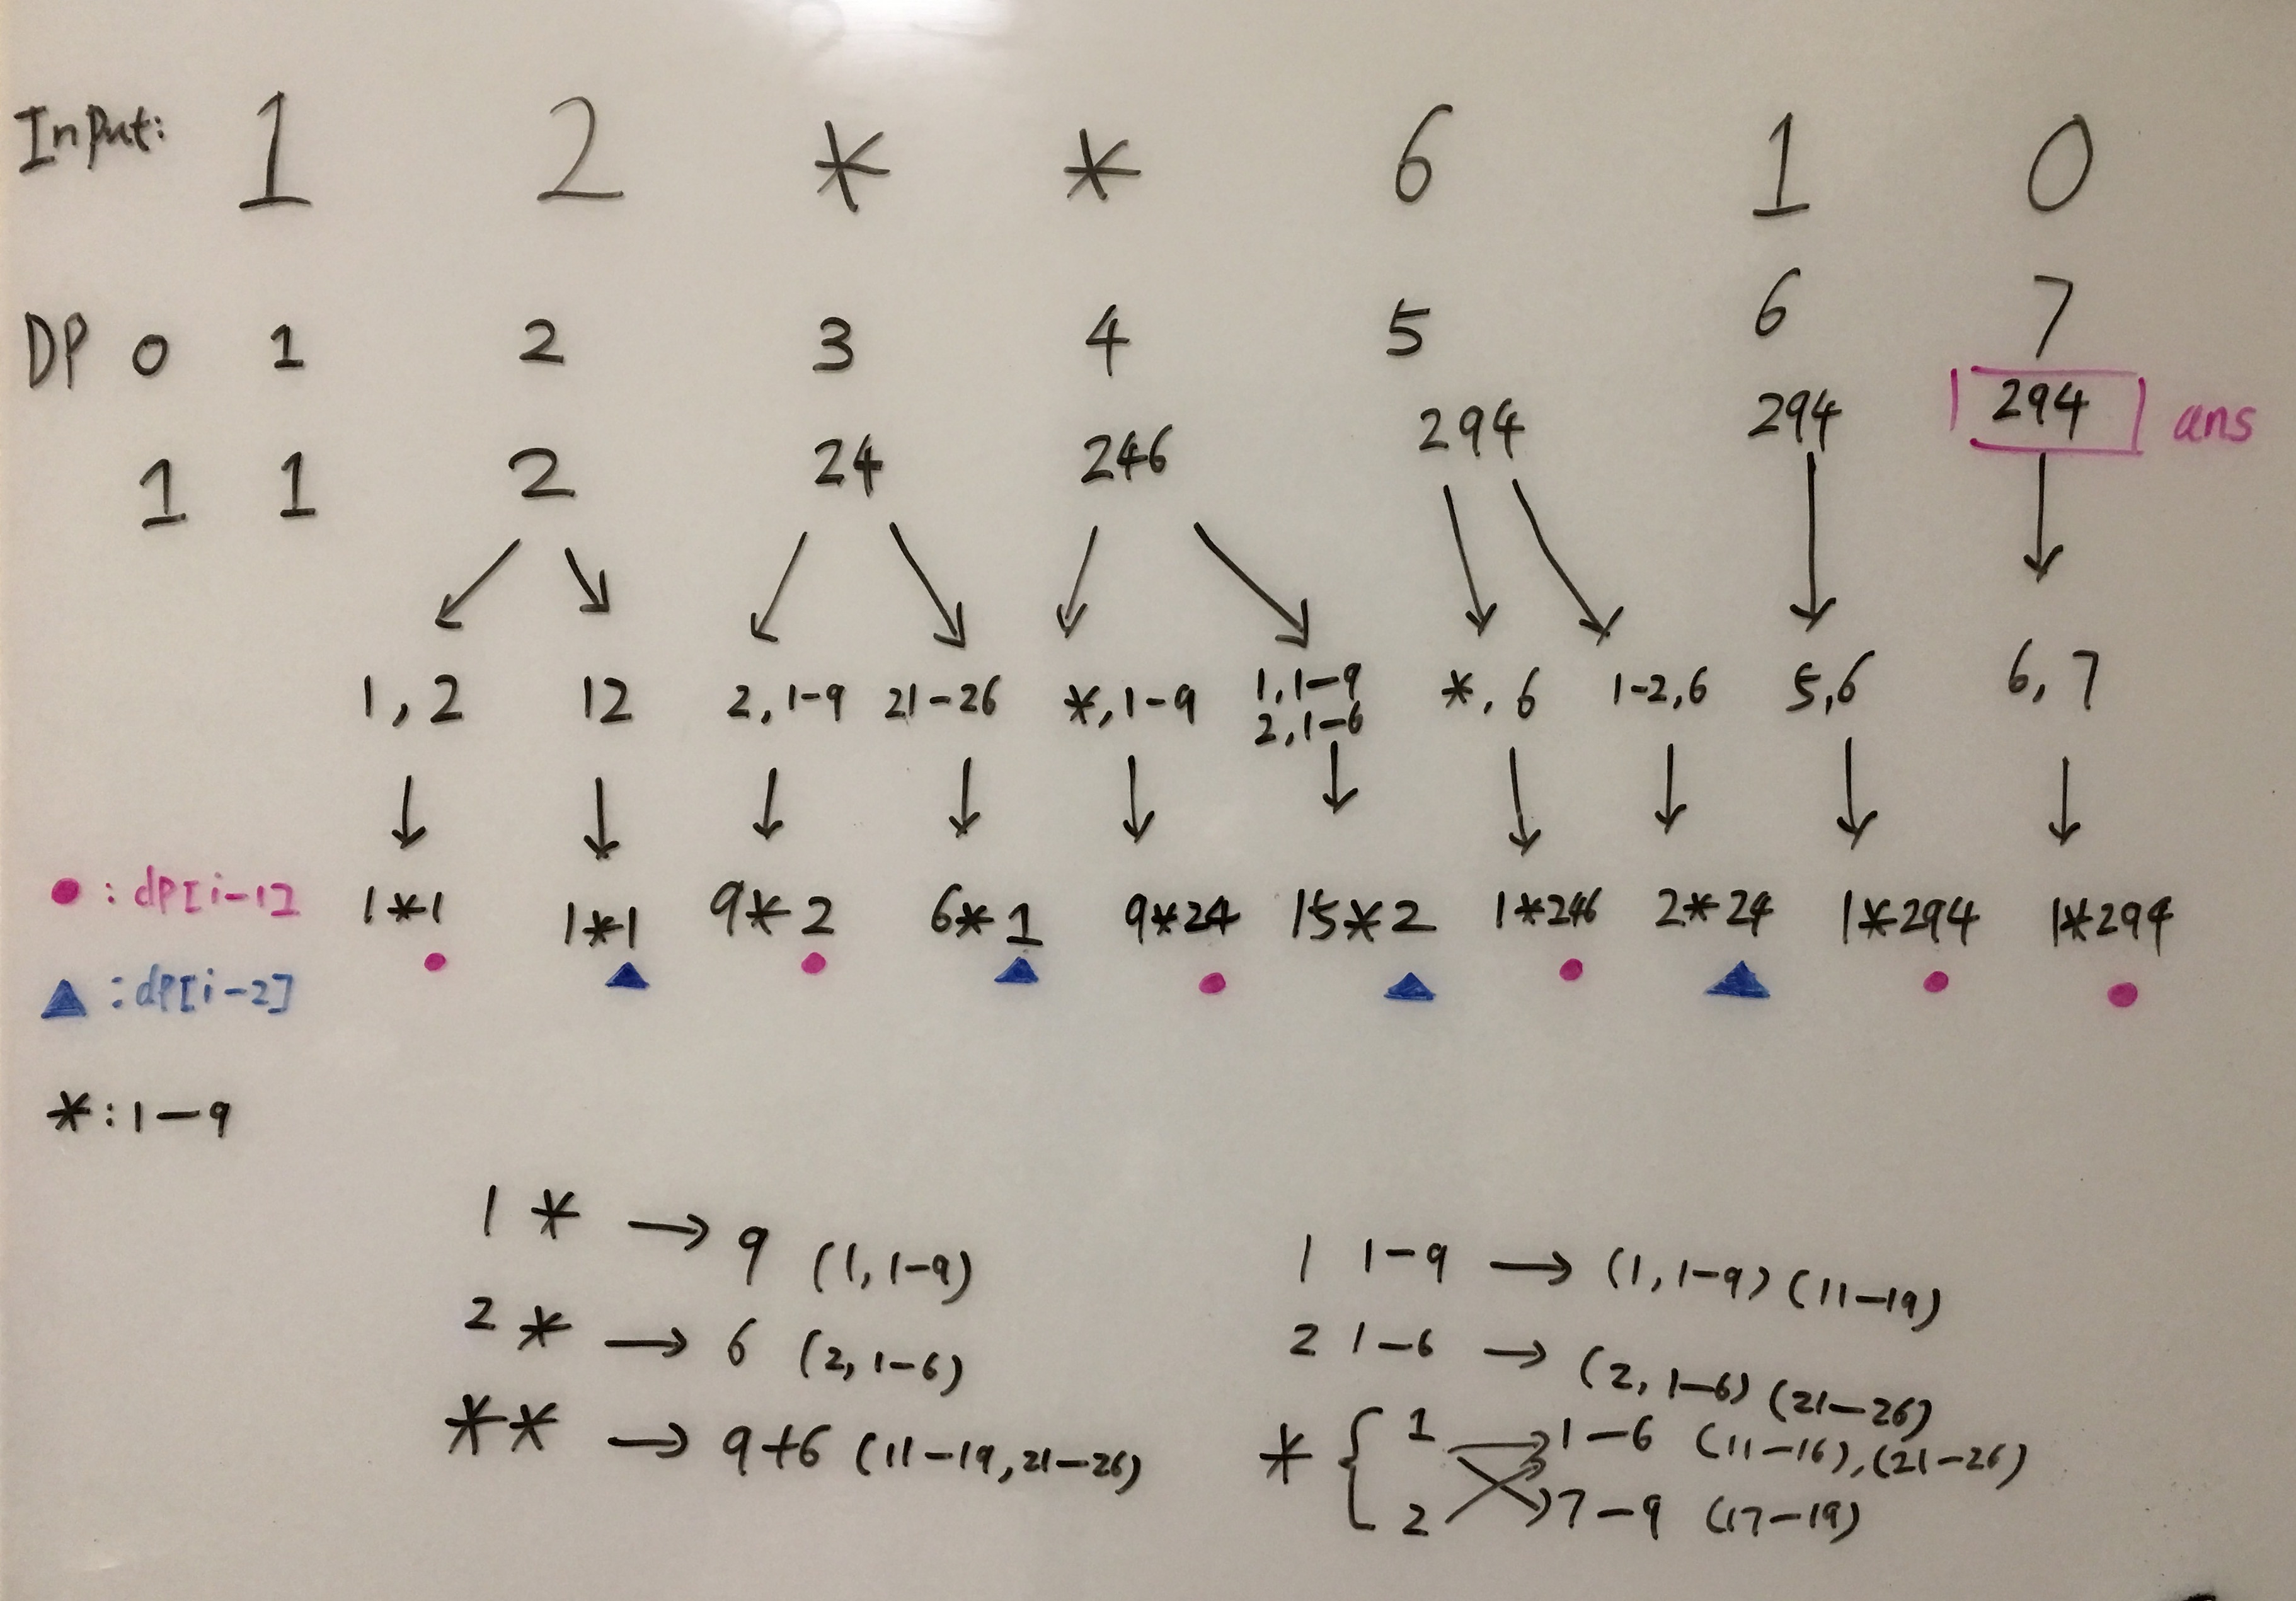 Input: 1 2 * * 6 1 0
DP 0 1 2 3 4 5 6 7
1 1 2 24 246 294 294 294 ans
1,2 12 2,1-9 21-26 *,1-9 1,1-9 *,6 1-2,6 5,6 6,7
2,1-6
●: dp[i-1] 1*1 1*1 9*2 6*1 9*24 15*2 1*246 2*24 1*294 1*294
▲: dp[i-2]
*: 1-9
1 * → 9 (1,1-9)
2 * → 6 (2,1-6)
** → 9+6 (11-19,21-26)
1 1-9 → (1,1-9) (11-19)
2 1-6 → (2,1-6) (21-26)
* { 1 1-6 (11-16),(21-26)
2 7-9 (17-19)